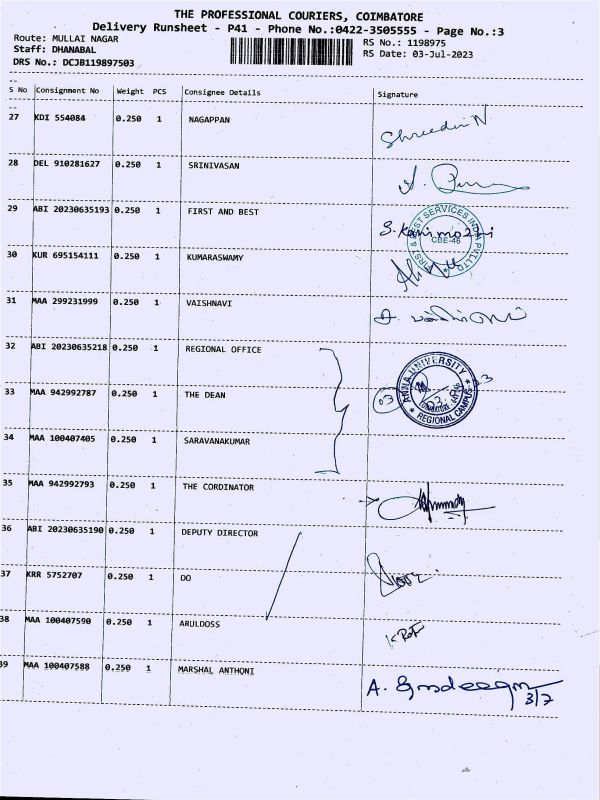 THE PROFESSIONAL COURIERS, COIMBATORE
Delivery Runsheet - P41 - Phone No.:0422-3505555 - Page No.:3
Route: MULLAI NAGAR
Staff: DHANABAL
DRS No.: DCJB119897503
RS No.: 1198975
RS Date: 03-Jul-2023
S No Consignment No Weight PCS Consignee Details Signature
27 KDI 554084 0.250 1 NAGAPPAN
28 DEL 910281627 0.250 1 SRINIVASAN
29 ABI 20230635193 0.250 1 FIRST AND BEST S. Kanimozhi
FIRST & BEST SERVICES INDIA PVT.LTD CBE-46
30 KUR 695154111 0.250 1 KUMARASWAMY
31 MAA 299231999 0.250 1 VAISHNAVI
32 ABI 20230635218 0.250 1 REGIONAL OFFICE
33 MAA 942992787 0.250 1 THE DEAN
ANNA UNIVERSITY REGIONAL CAMPUS
03
34 MAA 100407405 0.250 1 SARAVANAKUMAR
35 MAA 942992793 0.250 1 THE CORDINATOR
36 ABI 20230635190 0.250 1 DEPUTY DIRECTOR
37 KRR 5752707 0.250 1 DO
38 MAA 100407590 0.250 1 ARULDOSS
39 MAA 100407588 0.250 1 MARSHAL ANTHONI
3/7